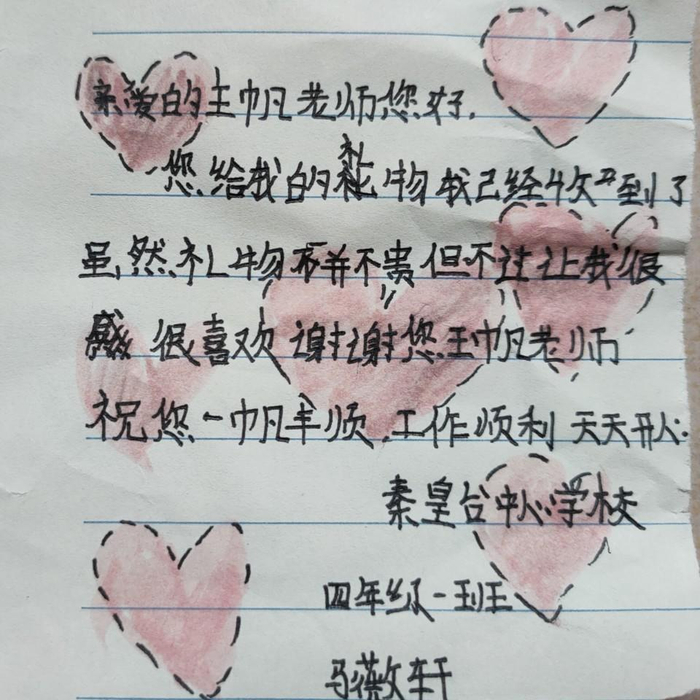 亲爱的王帆老师您好.
您给我的礼物我已经收到了
虽然礼物并不贵但不过让我很
感 很喜欢 谢谢您王帆老师
祝您一帆丰顺.工作顺利 天天开心.
秦皇台中心学校
四年级一班
马薇轩